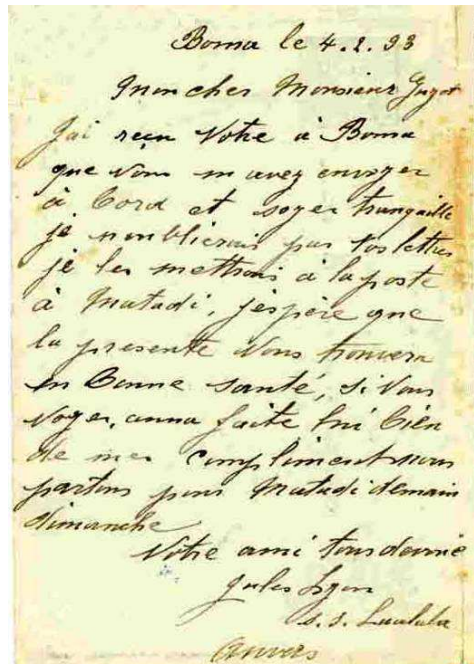 Boma le 4.2.93
Mon cher Monsieur Guyot
J'ai reçu Votre à Boma
que Vous m avez envoyer
à Bord et soyer tranquille
je n'oublierais pas tos lettres
je les mettrais à la poste
à Matadi, j'éspère que
la presente Vous trouvera
en Bonne santé, si Vous
Voyer, anna faite lui bien
de mes compliments nous
partons pour Matadi demain
dimanche
Votre ami tous
Jules
s.s. Lualaba
Anvers